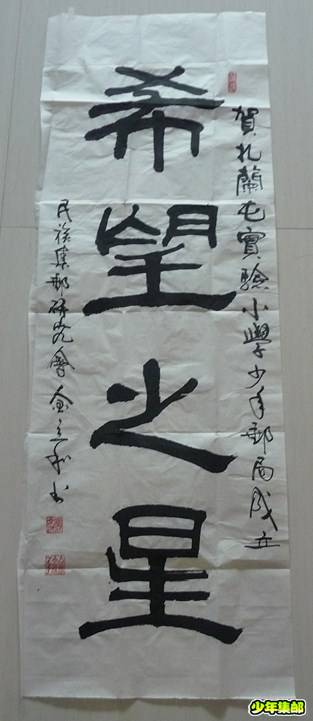 賀扎蘭屯實驗小學少年郵局成立
希望之星
民族集邮研究會金立和书
少年集邮